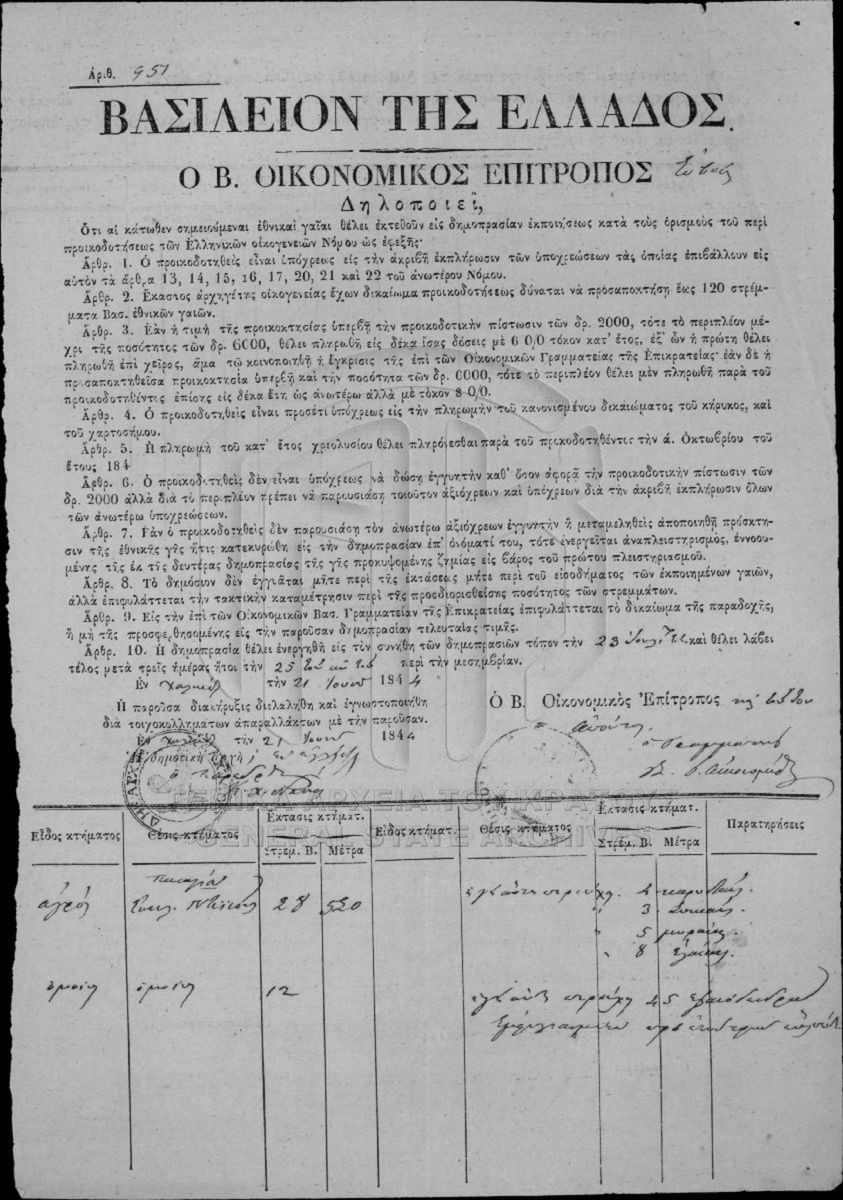 Ἀριθ. 951
ΒΑΣΙΛΕΙΟΝ ΤΗΣ ΕΛΛΑΔΟΣ.
Ο Β. ΟΙΚΟΝΟΜΙΚΟΣ ΕΠΙΤΡΟΠΟΣ Εὐβοίας
Δηλοποιεῖ,
Ὅτι αἱ κάτωθεν σημειούμεναι ἐθνικαὶ γαῖαι θέλει ἐκτεθοῦν εἰς δημοπρασίαν ἐκποιήσεως κατὰ τοὺς ὁρισμοὺς τοῦ περὶ
προικοδοτήσεως τῶν Ἑλληνικῶν οἰκογενειῶν Νόμου ὡς ἐφεξῆς·
Ἄρθρ. 1. Ὁ προικοδοτηθεὶς εἶναι ὑπόχρεως εἰς τὴν ἀκριβῆ ἐκπλήρωσιν τῶν ὑποχρεώσεων τὰς ὁποίας ἐπιβάλλουν εἰς
αὐτὸν τὰ ἄρθρα 13, 14, 15, 16, 17, 20, 21 καὶ 22 τοῦ ἀνωτέρω Νόμου.
Ἄρθρ. 2. Ἕκαστος ἀρχηγέτης οἰκογενείας ἔχων δικαίωμα προικοδοτήσεως δύναται νὰ προσαποκτήσῃ ἕως 120 στρέμ-
ματα Βασ. ἐθνικῶν γαιῶν.
Ἄρθρ. 3. Ἐὰν ἡ τιμὴ τῆς προικοκτησίας ὑπερβῇ τὴν προικοδοτικὴν πίστωσιν τῶν δρ. 2000, τότε τὸ περιπλέον μέ-
χρι τῆς ποσότητος τῶν δρ. 6000, θέλει πληρωθῆ εἰς δέκα ἴσας δόσεις μὲ 6 0/0 τόκον κατ' ἔτος, ἐξ' ὧν ἡ πρώτη θέλει
πληρωθῆ ἐπὶ χεῖρος, ἅμα τῷ κοινοποιηθῇ ἡ ἔγκρισις τῆς ἐπὶ τῶν Οἰκονομικῶν Γραμματείας τῆς Ἐπικρατείας· ἐὰν δὲ ἡ
προσαποκτηθεῖσα προικοκτησία ὑπερβῇ καὶ τὴν ποσότητα τῶν δρ. 6000, τότε τὸ περιπλέον θέλει μὲν πληρωθῆ παρὰ τοῦ
προικοδοτηθέντος ἐπίσης εἰς δέκα ἔτη ὡς ἀνωτέρω ἀλλὰ μὲ τόκον 8 0/0.
Ἄρθρ. 4. Ὁ προικοδοτηθεὶς εἶναι προσέτι ὑπόχρεως εἰς τὴν πληρωμὴν τοῦ κανονισμένου δικαιώματος τοῦ κήρυκος, καὶ
τοῦ χαρτοσήμου.
Ἄρθρ. 5. Ἡ πληρωμὴ τοῦ κατ' ἔτος χρεολυσίου θέλει πληρόνεσθαι παρὰ τοῦ προικοδοτηθέντος τὴν ά. Ὀκτωβρίου τοῦ
ἔτους 184
Ἄρθρ. 6. Ὁ προικοδοτηθεὶς δὲν εἶναι ὑπόχρεως νὰ δώσῃ ἐγγυητὴν καθ' ὅσον ἀφορᾷ τὴν προικοδοτικὴν πίστωσιν τῶν
δρ. 2000 ἀλλὰ διὰ τὸ περιπλέον πρέπει νὰ παρουσιάσῃ τοιοῦτον ἀξιόχρεων καὶ ὑπόχρεων διὰ τὴν ἀκριβῆ ἐκπλήρωσιν ὅλων
τῶν ἀνωτέρω ὑποχρεώσεων.
Ἄρθρ. 7. Ἐὰν ὁ προικοδοτηθεὶς δὲν παρουσιάσῃ τὸν ἀνωτέρω ἀξιόχρεων ἐγγυητὴν ἢ μεταμεληθεὶς ἀποποιηθῇ πρόσκτη-
σιν τῆς ἐθνικῆς γῆς ἥτις κατεκυρώθη εἰς τὴν δημοπρασίαν ἐπ' ὀνόματί του, τότε ἐνεργεῖται ἀναπλειστηρισμὸς, ἐννοου-
μένης τῆς ἐκ τῆς δευτέρας δημοπρασίας τῆς γῆς προκυψομένης ζημίας εἰς βάρος τοῦ πρώτου πλειστηριασμοῦ.
Ἄρθρ. 8. Τὸ δημόσιον δὲν ἐγγιᾶται μῆτε περὶ τῆς ἐκτάσεως μῆτε περὶ τοῦ εἰσοδήματος τῶν ἐκποιημένων γαιῶν,
ἀλλὰ ἐπιφυλάττεται τὴν τακτικὴν καταμέτρησιν περὶ τῆς προσδιορισθείσης ποσότητος τῶν στρεμμάτων.
Ἄρθρ. 9. Εἰς τὴν ἐπὶ τῶν Οἰκονομικῶν Βασ. Γραμματείαν τῆς Ἐπικρατείας ἐπιφυλάττεται τὸ δικαίωμα τῆς παραδοχῆς,
ἢ μὴ τῆς προσφερθησομένης εἰς τὴν παροῦσαν δημοπρασίαν τελευταίας τιμῆς.
Ἄρθρ. 10. Ἡ δημοπρασία θέλει ἐνεργηθῆ εἰς τὸν συνήθη τῶν δημοπρασιῶν τόπον τὴν 23 καὶ θέλει λάβει
τέλος μετὰ τρεῖς ἡμέρας ἤτοι τὴν 25 περὶ τὴν μεσημβρίαν.
Ἐν Χαλκίδι τὴν 21 1844
Ἡ παροῦσα διακήρυξις διελαλήθη καὶ ἐγνωστοποιήθη
διὰ τοιχοκολλημάτων ἀπαραλλάκτων μὲ τὴν παροῦσαν.
Ἐν Χαλκίδι τὴν 21 1844
Ἡ δημοτικὴ Ἀρχὴ
Ὁ Β. Οἰκονομικὸς Ἐπίτροπος
ὁ γραμματεὺς
GENERAL STATE ARCHIVES
Εἶδος κτήματος Θέσις κτήματος Ἔκτασις κτήματ. Εἶδος κτήματ. Θέσις κτήματος Ἔκτασις κτήματ. Παρατηρήσεις
Στρέμ. Β. Μέτρα Στρέμ. Β. Μέτρα
ἀγρὸς 28 520
3
5
8
ὁμοίως ὁμοίως 12
45